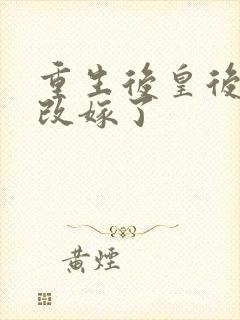 重生後皇後
改嫁了
黄煙